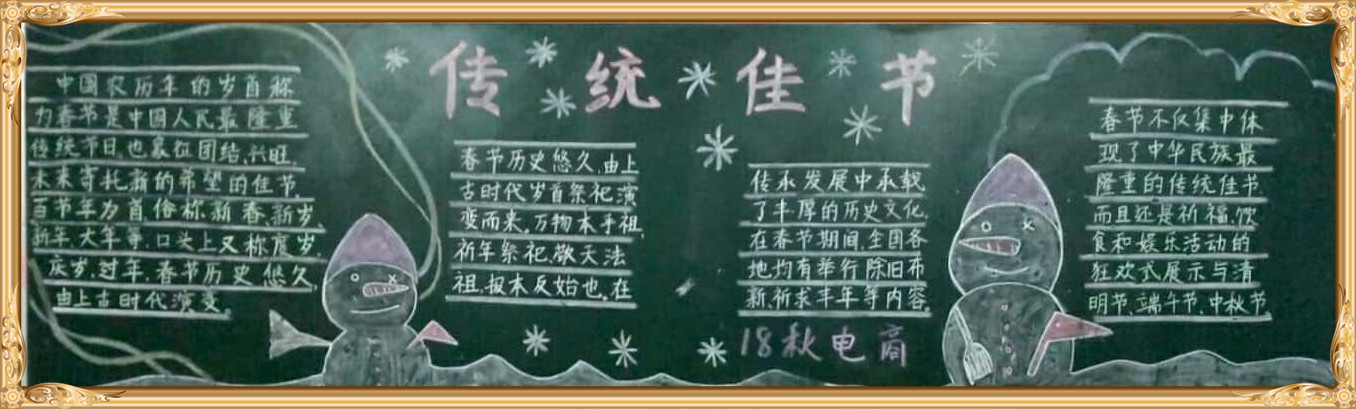 传统佳节
中国农历年的岁首称
为春节是中国人民最隆重
传统节日,也象征团结,兴旺,
未来寄托新的希望的佳节,
百节年为首,俗称新春,新岁,
新年,大年等,口头上又称度岁,
庆岁,过年,春节历史悠久,
由上古时代演变,
春节历史悠久,由上
古时代岁首祭祀演
变而来,万物本乎祖,
祈年祭祀,敬天法
祖,报本反始也,在
传承发展中承载
了丰厚的历史文化,
在春节期间,全国各
地均有举行除旧布
新,祈求丰年等内容,
18秋电商
春节不仅集中体
现了中华民族最
隆重的传统佳节
而且还是祈福,饮
食和娱乐活动的
狂欢式展示与清
明节,端午节,中秋节